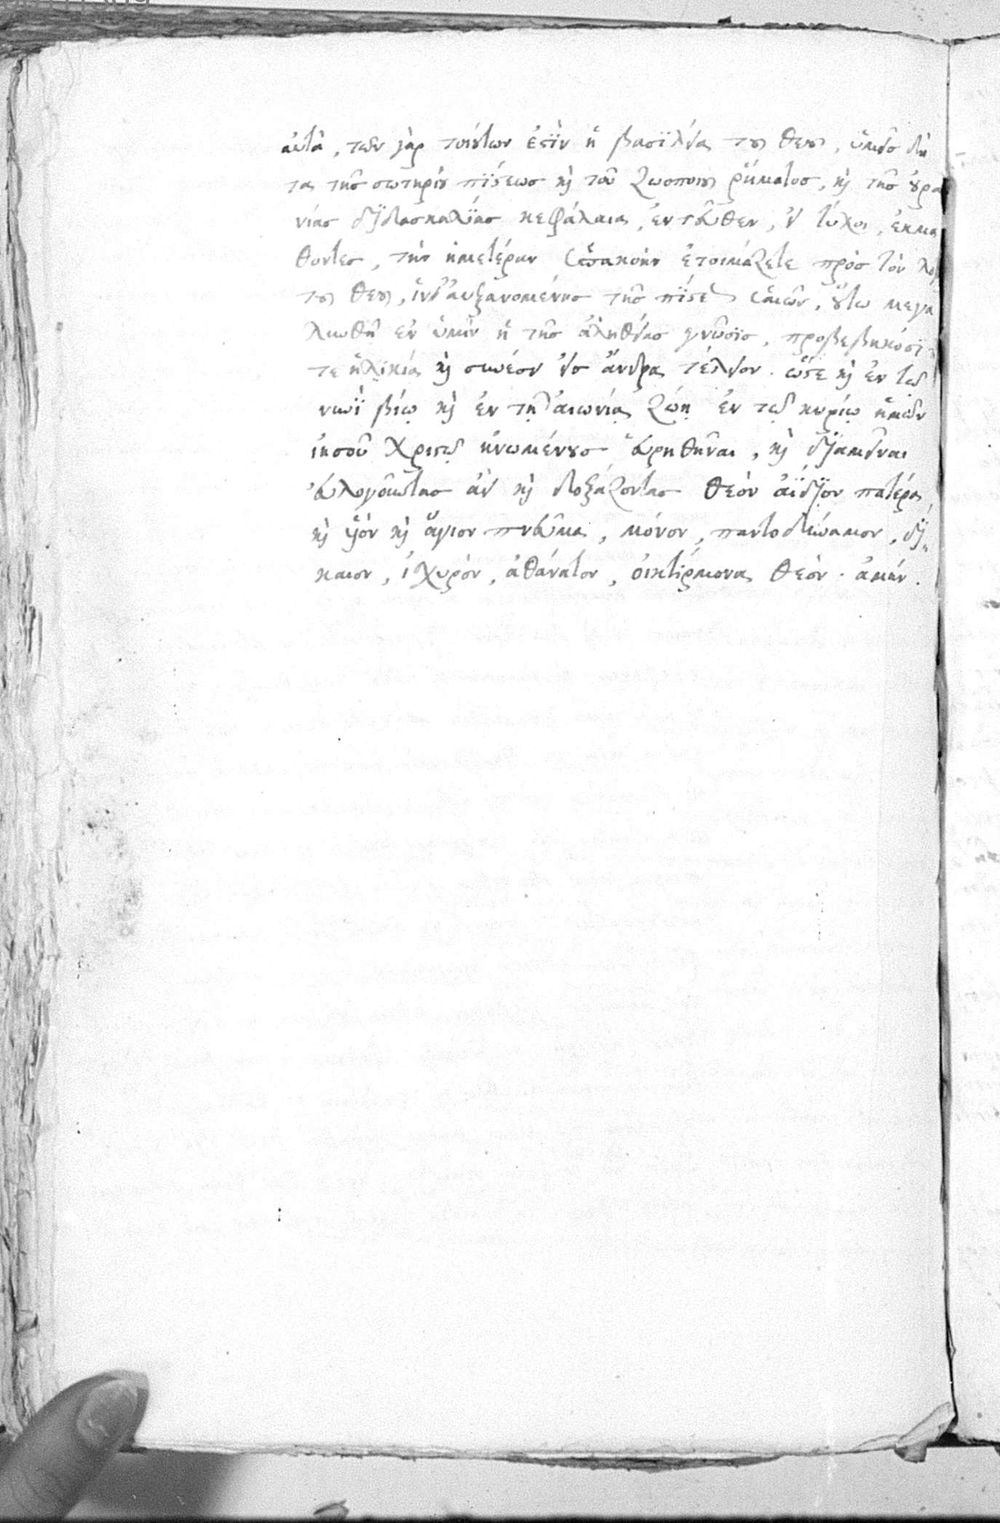 αὐτά, τῶν γὰρ τοιούτων ἐστὶν ἡ βασιλεία τοῦ θεοῦ, ὑμεῖς
τὰ τῆς σωτηρίου πίστεως καὶ τοῦ ζωοποιοῦ ῥήματος, καὶ τῆς οὐρα
νίας διδασκαλίας κεφάλαια, ἐντεῦθεν, ἐκμα
θόντες, τὴν ἡμετέραν ὑπακοὴν ἑτοιμάζετε πρὸς τὸν
τοῦ θεοῦ, ἵν' αὐξανομένης τῆς πίστεως ὑμῶν, οὕτω μεγα
λυνθῇ ἐν ὑμῖν ἡ τῆς ἀληθείας γνῶσις, προβεβηκόσι
τε ἡλικίᾳ καὶ συνέσει εἰς ἄνδρα τέλειον. ὥστε καὶ ἐν τῷ
νυνὶ βίῳ καὶ ἐν τῇ αἰωνίᾳ ζωῇ ἐν τῷ κυρίῳ ἡμῶν
ἰησοῦ χριστῷ ἡνωμένους εὑρηθῆναι, καὶ διαμεῖναι
εὐλογοῦντας ἀεὶ καὶ δοξάζοντας θεὸν ἀΐδιον πατέρα
καὶ υἱὸν καὶ ἅγιον πνεῦμα, μόνον, παντοδύναμον, δί-
καιον, ἰσχυρόν, ἀθάνατον, οἰκτίρμονα θεόν. ἀμήν.